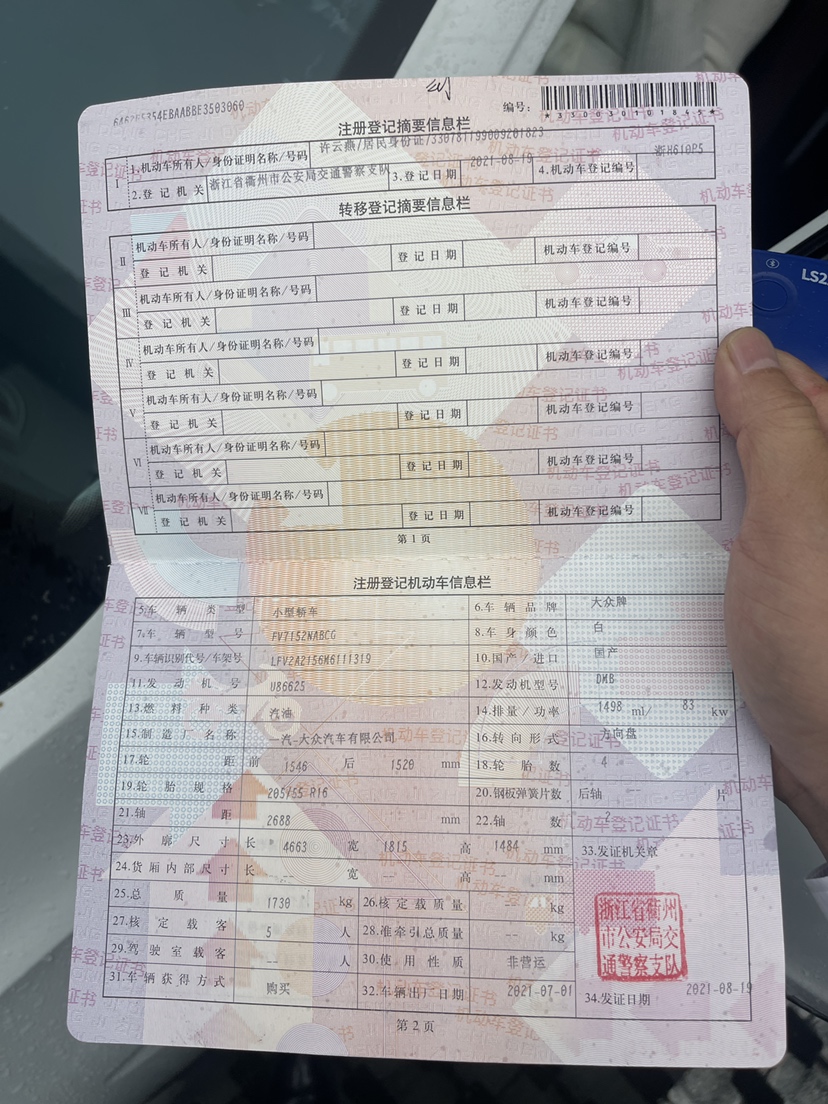 编号:
注册登记摘要信息栏
I 1.机动车所有人/身份证明名称/号码 许云燕/居民身份证/330781199009201823
2.登记机关 浙江省衢州市公安局交通警察支队 3.登记日期 2021-08-19 4.机动车登记编号 浙H610P5
转移登记摘要信息栏
II 机动车所有人/身份证明名称/号码
登记机关 登记日期 机动车登记编号
III 机动车所有人/身份证明名称/号码
登记机关 登记日期 机动车登记编号
IV 机动车所有人/身份证明名称/号码
登记机关 登记日期 机动车登记编号
V 机动车所有人/身份证明名称/号码
登记机关 登记日期 机动车登记编号
VI 机动车所有人/身份证明名称/号码
登记机关 登记日期 机动车登记编号
VII 机动车所有人/身份证明名称/号码
登记机关 登记日期 机动车登记编号
第1页
注册登记机动车信息栏
5.车辆类型 小型轿车 6.车辆品牌 大众牌
7.车辆型号 FV7152NABCG 8.车身颜色 白
9.车辆识别代号/车架号 LFV2A2156M6111319 10.国产/进口 国产
11.发动机号 U86625 12.发动机型号 DMB
13.燃料种类 汽油 14.排量/功率 1498 ml/ 83 kw
15.制造厂名称 一汽-大众汽车有限公司 16.转向形式 方向盘
17.轮距 前 1546 后 1520 mm 18.轮胎数 4
19.轮胎规格 205/55 R16 20.钢板弹簧片数 后轴 -- 片
21.轴距 2688 mm 22.轴数 2
23.外廓尺寸 长 4663 宽 1815 高 1484 mm 33.发证机关章
24.货厢内部尺寸 长 -- 宽 -- 高 -- mm
25.总质量 1730 kg 26.核定载质量 -- kg
27.核定载客 5 人 28.准牵引总质量 -- kg
29.驾驶室载客 -- 人 30.使用性质 非营运
31.车辆获得方式 购买 32.车辆出厂日期 2021-07-01 34.发证日期 2021-08-19
浙江省衢州
市公安局交
通警察支队
第2页
LS2